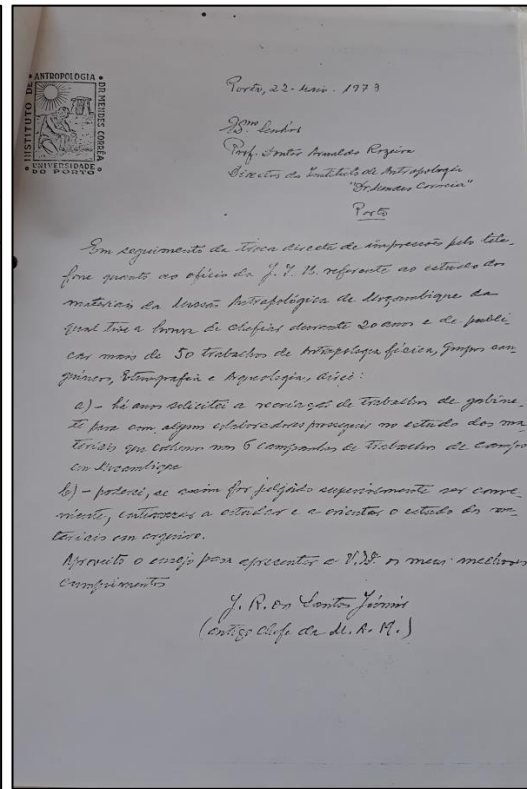 INSTITUTO DE ANTROPOLOGIA DR. MENDES CORRÊA
UNIVERSIDADE
DO PORTO
Porto, 22 - Maio - 1973
Exmo. Senhor
Prof. Doutor Arnaldo Rozeira
Director do Instituto de Antropologia
"Dr. Mendes Correia"
Porto
Em seguimento da troca directa de impressões pelo tele-
fone quanto ao ofício da J. I. U. referente ao estudo dos
materiais da Missão Antropológica de Moçambique da
qual tive a honra de chefiar durante 20 anos e de publi-
car mais de 50 trabalhos de Antropologia física, Grupos san-
guíneos, Etnografia e Arqueologia, direi:
a) - há anos solicitei a recriação de trabalhos de gabine-
te para com alguns colaboradores prosseguir no estudo dos ma-
teriais que colhemos nas 6 campanhas de trabalhos de campo
em Moçambique
b) - poderei, se assim for julgado superiormente ser conve-
niente, a estudar e a orientar o estudo dos ma-
teriais em arquivo.
Aproveito o ensejo para apresentar a V. Ex. os meus melhores
cumprimentos
J. R. dos Santos Júnior
(antigo chefe da M. A. M.)